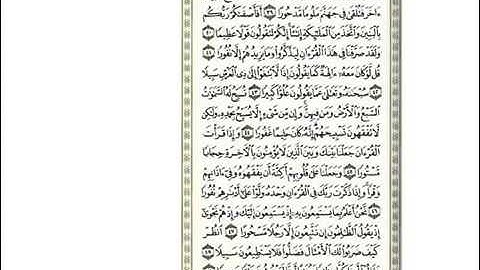 ءَاخَرَ فَتُلْقَىٰ فِي جَهَنَّمَ مَلُومًا مَّدْحُورًا ٣٩ أَفَأَصْفَىٰكُمْ رَبُّكُم
بِالْبَنِينَ وَاتَّخَذَ مِنَ الْمَلَٰئِكَةِ إِنَٰثًا إِنَّكُمْ لَتَقُولُونَ قَوْلًا عَظِيمًا ٤٠
وَلَقَدْ صَرَّفْنَا فِي هَٰذَا الْقُرْءَانِ لِيَذَّكَّرُوا وَمَا يَزِيدُهُمْ إِلَّا نُفُورًا ٤١
قُل لَّوْ كَانَ مَعَهُ ءَالِهَةٌ كَمَا يَقُولُونَ إِذًا لَّابْتَغَوْا إِلَىٰ ذِي الْعَرْشِ سَبِيلًا
٤٢ سُبْحَٰنَهُ وَتَعَٰلَىٰ عَمَّا يَقُولُونَ عُلُوًّا كَبِيرًا ٤٣ تُسَبِّحُ لَهُ السَّمَٰوَٰتُ
السَّبْعُ وَالْأَرْضُ وَمَن فِيهِنَّ وَإِن مِّن شَيْءٍ إِلَّا يُسَبِّحُ بِحَمْدِهِ وَلَٰكِن
لَّا تَفْقَهُونَ تَسْبِيحَهُمْ إِنَّهُ كَانَ حَلِيمًا غَفُورًا ٤٤ وَإِذَا قَرَأْتَ
الْقُرْءَانَ جَعَلْنَا بَيْنَكَ وَبَيْنَ الَّذِينَ لَا يُؤْمِنُونَ بِالْآخِرَةِ حِجَابًا
مَّسْتُورًا ٤٥ وَجَعَلْنَا عَلَىٰ قُلُوبِهِمْ أَكِنَّةً أَن يَفْقَهُوهُ وَفِي ءَاذَانِهِمْ
وَقْرًا وَإِذَا ذَكَرْتَ رَبَّكَ فِي الْقُرْءَانِ وَحْدَهُ وَلَّوْا عَلَىٰ أَدْبَٰرِهِمْ نُفُورًا
٤٦ نَّحْنُ أَعْلَمُ بِمَا يَسْتَمِعُونَ بِهِ إِذْ يَسْتَمِعُونَ إِلَيْكَ وَإِذْ هُمْ نَجْوَىٰ
إِذْ يَقُولُ الظَّٰلِمُونَ إِن تَتَّبِعُونَ إِلَّا رَجُلًا مَّسْحُورًا ٤٧ انظُرْ
كَيْفَ ضَرَبُوا لَكَ الْأَمْثَالَ فَضَلُّوا فَلَا يَسْتَطِيعُونَ سَبِيلًا ٤٨